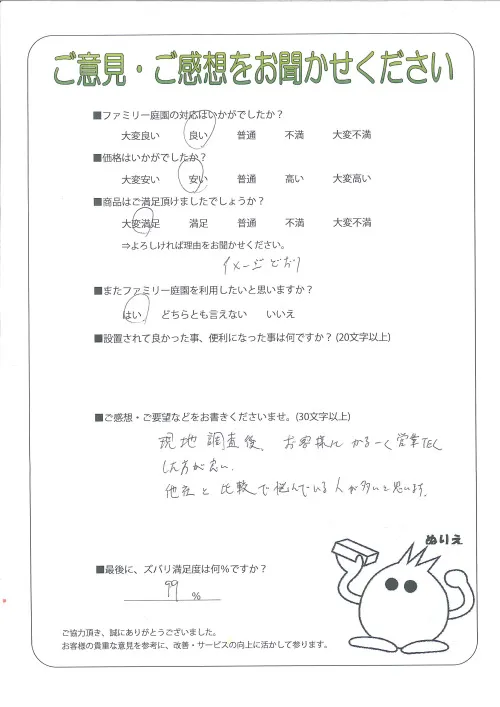 ご意見・ご感想をお聞かせください
■ファミリー庭園の対応はいかがでしたか？
大変良い 良い 普通 不満 大変不満
■価格はいかがでしたか？
大変安い 安い 普通 高い 大変高い
■商品はご満足頂けましたでしょうか？
大変満足 満足 普通 不満 大変不満
⇒よろしければ理由をお聞かせください。
イメージどおり
■またファミリー庭園を利用したいと思いますか？
はい どちらとも言えない いいえ
■設置されて良かった事、便利になった事は何ですか？(20文字以上)
■ご感想・ご要望などをお書きくださいませ。(30文字以上)
現地調査後、お客様にかるーく営業TEL
した方が良い。
他社と比較で悩んでいる人が多いと思います。
ぬりえ
■最後に、ズバリ満足度は何％ですか？
99 %
ご協力頂き、誠にありがとうございました。
お客様の貴重な意見を参考に、改善・サービスの向上に活かして参ります。